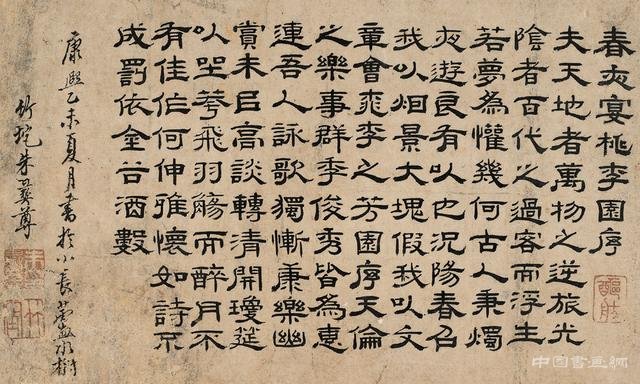 春夜宴桃李園序
夫天地者萬物之逆旅光
陰者百代之過客而浮生
若夢為懽幾何古人秉燭
夜遊良有以也況陽春召
我以烟景大塊假我以文
章會桃李之芳園序天倫
之樂事群季俊秀皆為惠
連吾人詠歌獨慚康樂幽
賞未已高談轉清開瓊筵
以坐華飛羽觴而醉月不
有佳作何伸雅懷如詩不
成罰依金谷酒數
康熙乙未夏月書於小長蘆
竹垞朱彝尊
中国書画網